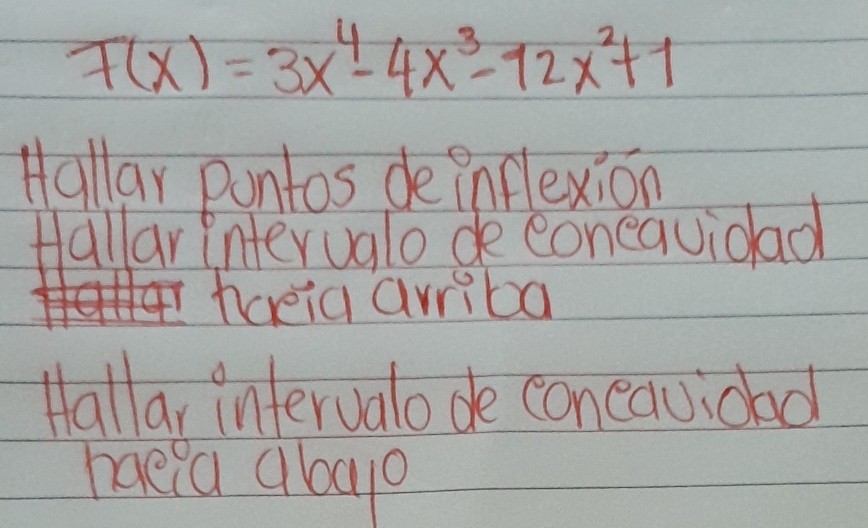 F(x) = 3x⁴ - 4x³ - 12x² + 1
Hallar puntos de inflexión
Hallar intervalo de concavidad
hacia arriba
Hallar intervalo de concavidad
hacia abajo